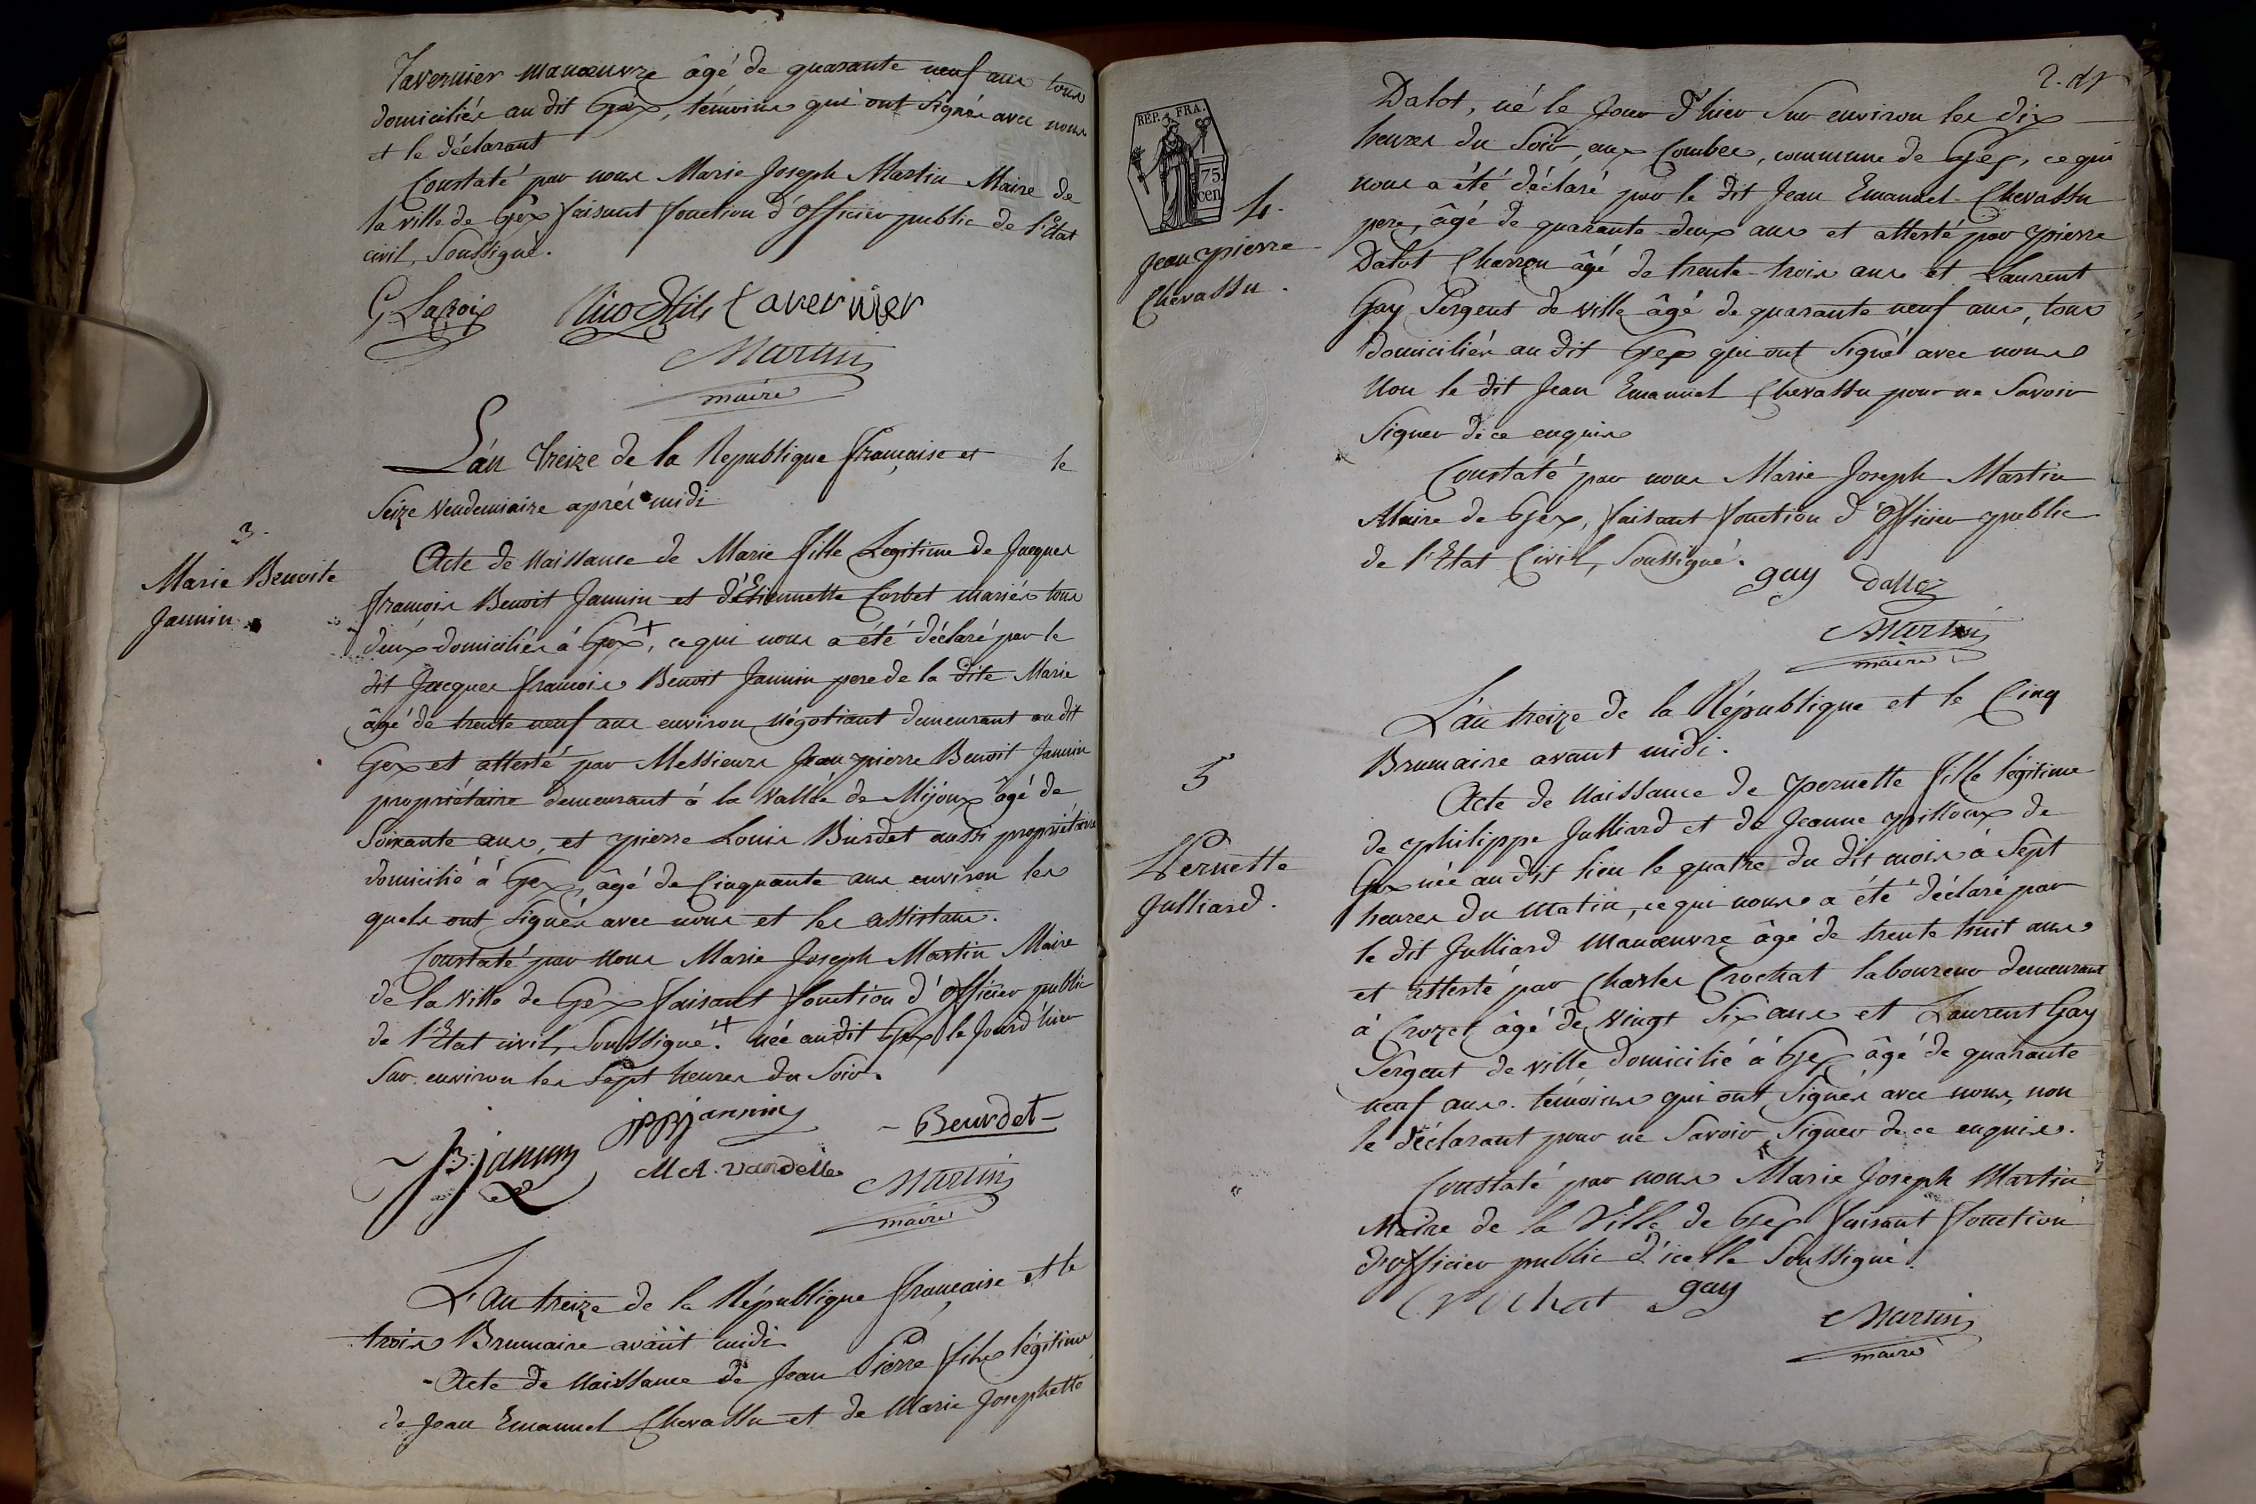 Tavernier manœuvre âgé de quarante neuf ans tous
domiciliés au dit Gex, témoins qui ont signés avec nous
et le déclarant
Constaté par nous Marie Joseph Martin Maire de
la ville de Gex faisant fonction d'officier public de l'Etat
civil, Soussigné.
G. Lacroix Nicod fils Tavernier
Martin
maire
L'an treize de la Republique française et le
Seize Vendemiaire aprés midi
3.
Marie Benoite
Jannin
Acte de Naissance de Marie fille Legitime de Jacques
françois Benoit Jannin et d'Etiennette Corbet mariés tous
deux domiciliés à Gex +, ce qui nous a été déclaré par le
dit Jacques françois Benoit Jannin pere de la dite Marie
âgé de trente neuf ans environ négotiant demeurant au dit
Gex et attesté par Messieurs Jean pierre Benoit Jannin
propriétaire demeurant à la Vallée de Mijoux âgé de
Soixante ans, et pierre Louis Burdet aussi propriétaire
domicilié à Gex, âgé de Cinquante ans environ les
quels ont signés avec nous et les assistans.
Constaté par Nous Marie Joseph Martin Maire
de la Ville de Gex faisant fonction d'officier public
de l'Etat civil, Soussigné. + née au dit Gex le Jour d'hier
Sur environ les Sept heures du Soir.
B. jannin JPB jannin Beurdet
M. A. Vandelle Martin
maire
L'an treize de la République française et le
trois Brumaire avant midi
Acte de Naissance de Jean Pierre fils légitime
de Jean Emanuel Chevassu et de Marie Josephette
2.
REP. FRA.
75
cen
4.
Jean pierre
Chevassu.
Dalot, né le Jour d'hier Sur environ les dix
heures du Soir, aux Combes, commune de Gex, ce qui
nous a été déclaré par le dit Jean Emanuel Chevassu
pere, âgé de quarante deux ans et attesté par pierre
Dalot Charron âgé de trente trois ans et Laurent
Gay Sergent de ville âgé de quarante neuf ans, tous
domiciliés au dit Gex qui ont signé avec nous
Non le dit Jean Emanuel Chevassu pour ne Savoir
Signer de ce enquis
Constaté par nous Marie Joseph Martin
Maire de Gex, faisant fonction d'officier public
de l'Etat Civil, Soussigné.
gay Dalloz
Martin
maire
L'an treize de la République et le Cinq
Brumaire avant midi.
5
Pernette
Julliard.
Acte de Naissance de pernette fille légitime
de philippe Julliard et de Jeanne pilloux de
Gex née au dit lieu le quatre du dit mois à Sept
heures du Matin, ce qui nous a été déclaré par
le dit Julliard Manœuvre âgé de trente huit ans
et attesté par Charles Crochat laboureur demeurant
à Crozet âgé de Vingt Six ans et Laurent Gay
Sergent de ville domicilié à Gex âgé de quarante
neuf ans. témoins qui ont signés avec nous, non
le déclarant pour ne Savoir Signer de ce enquis.
Constaté par nous Marie Joseph Martin
Maire de la Ville de Gex faisant fonction
d'officier public d'icelle Soussigné.
Crochat gay
Martin
maire